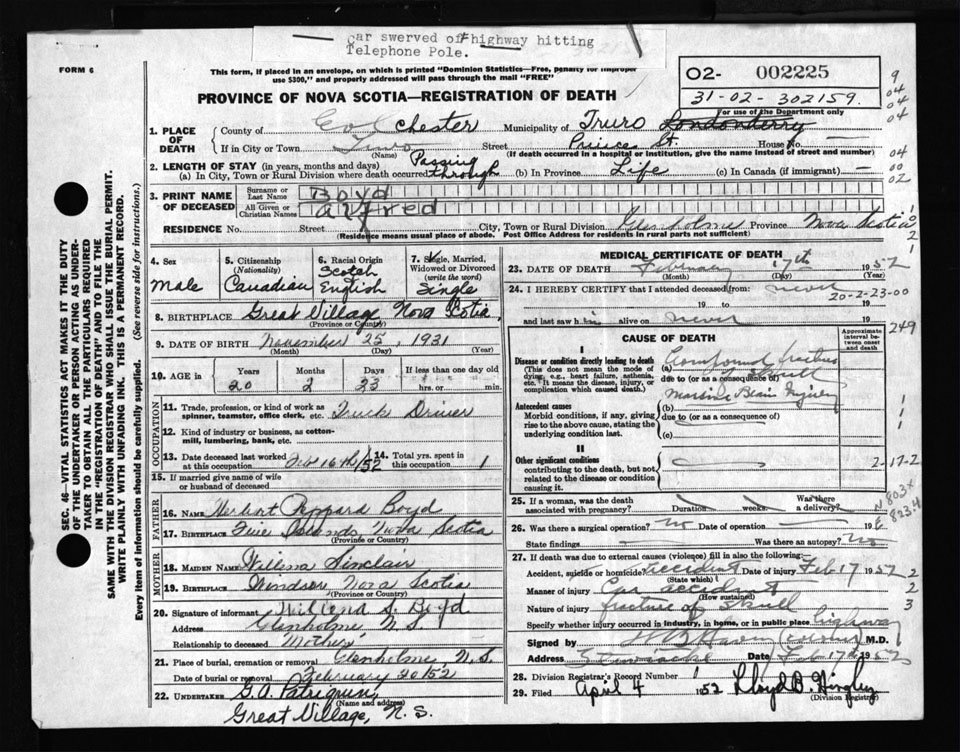 Car swerved off highway hitting
Telephone Pole.
FORM 6
This form, if placed in an envelope, on which is printed "Dominion Statistics—Free, penalty for improper
use $300," and properly addressed will pass through the mail "FREE"
PROVINCE OF NOVA SCOTIA—REGISTRATION OF DEATH
02- 002225
31-02-302159.
For use of the Department only
9
04
04
04
04
00
02
1. PLACE OF DEATH
County of Colchester Municipality of Truro Londonderry
If in City or Town Truro Street Prince St. House No.
(Name) (If death occurred in a hospital or institution, give the name instead of street and number)
2. LENGTH OF STAY (in years, months and days)
(a) In City, Town or Rural Division where death occurred Passing through (b) In Province Life (c) In Canada (if immigrant) —
3. PRINT NAME OF DECEASED
Surname or Last Name Boyd
All Given or Christian Names alfred
RESIDENCE No. Street City, Town or Rural Division Glenholme Province Nova Scotia
(Residence means usual place of abode. Post Office Address for residents in rural parts not sufficient)
4. Sex
Male
5. Citizenship
(Nationality)
Canadian
6. Racial Origin
Scotch
English
7. Single, Married,
Widowed or Divorced
(write the word)
Single
8. BIRTHPLACE Great Village Nova Scotia
(Province or Country)
9. DATE OF BIRTH November 25, 1931
(Month) (Day) (Year)
10. AGE Years Months Days If less than one day old
20 2 23 hrs. or min.
OCCUPATION
11. Trade, profession, or kind of work as
spinner, teamster, office clerk, etc. Truck Driver
12. Kind of industry or business, as cotton-
mill, lumbering, bank, etc.
13. Date deceased last worked
at this occupation Feb 16th/52
14. Total yrs. spent in
this occupation 1
15. If married give name of wife
or husband of deceased
FATHER
16. NAME Herbert Peppard Boyd
17. BIRTHPLACE Five Islands Nova Scotia
(Province or Country)
MOTHER
18. MAIDEN NAME Willena Sinclair
19. BIRTHPLACE Windsor Nova Scotia
(Province or Country)
20. Signature of informant Willena S. Boyd
Address Glenholme N.S.
Relationship to deceased Mother
21. Place of burial, cremation or removal Glenholme, N.S.
Date of burial or removal February 20/52
22. UNDERTAKER G.A. Patriquin,
(Name and address)
Great Village, N.S.
MEDICAL CERTIFICATE OF DEATH
23. DATE OF DEATH February 17th 1952
(Month) (Day) (Year)
24. I HEREBY CERTIFY that I attended deceased from: never
20-2-23-00
19 to 19
and last saw him alive on never 19
249
CAUSE OF DEATH
Approximate
interval be-
tween onset
and death
I
Disease or condition directly leading to death
(This does not mean the mode of
dying, e.g., heart failure, asthenia,
etc. It means the disease, injury, or
complication which caused death.)
(a) Compound fracture
due to (or as a consequence of) Skull
Massive Brain Injury
Antecedent causes
Morbid conditions, if any, giving
rise to the above cause, stating the
underlying condition last.
(b)
due to (or as a consequence of)
(c)
II
Other significant conditions
contributing to the death, but not
related to the disease or condition
causing it.
2-17-2
25. If a woman, was the death
associated with pregnancy? Duration weeks. Was there
a delivery?
N 803x
E 823.4
26. Was there a surgical operation? No Date of operation 19
State findings Was there an autopsy? No
27. If death was due to external causes (violence) fill in also the following:
Accident, suicide or homicide? accident Date of injury Feb 17 1952
(State which)
Manner of injury Car accident
(How sustained)
Nature of injury fracture of Skull
Specify whether injury occurred in industry, in home, or in public place highway
Signed by (coroner) M.D.
Address Stewiacke Date Feb 17th 1952
28. Division Registrar's Record Number 1
29. Filed April 4 1952 Lloyd B. Hingley
(Division Registrar)
SEC. 46—VITAL STATISTICS ACT MAKES IT THE DUTY
OF THE UNDERTAKER OR PERSON ACTING AS UNDER-
TAKER TO OBTAIN ALL THE PARTICULARS REQUIRED
IN THE "REGISTRATION OF DEATH" AND TO FILE THE
SAME WITH THE DIVISION REGISTRAR WHO SHALL ISSUE THE BURIAL PERMIT.
WRITE PLAINLY WITH UNFADING INK. THIS IS A PERMANENT RECORD.
Every item of information should be carefully supplied. (See reverse side for instructions.)